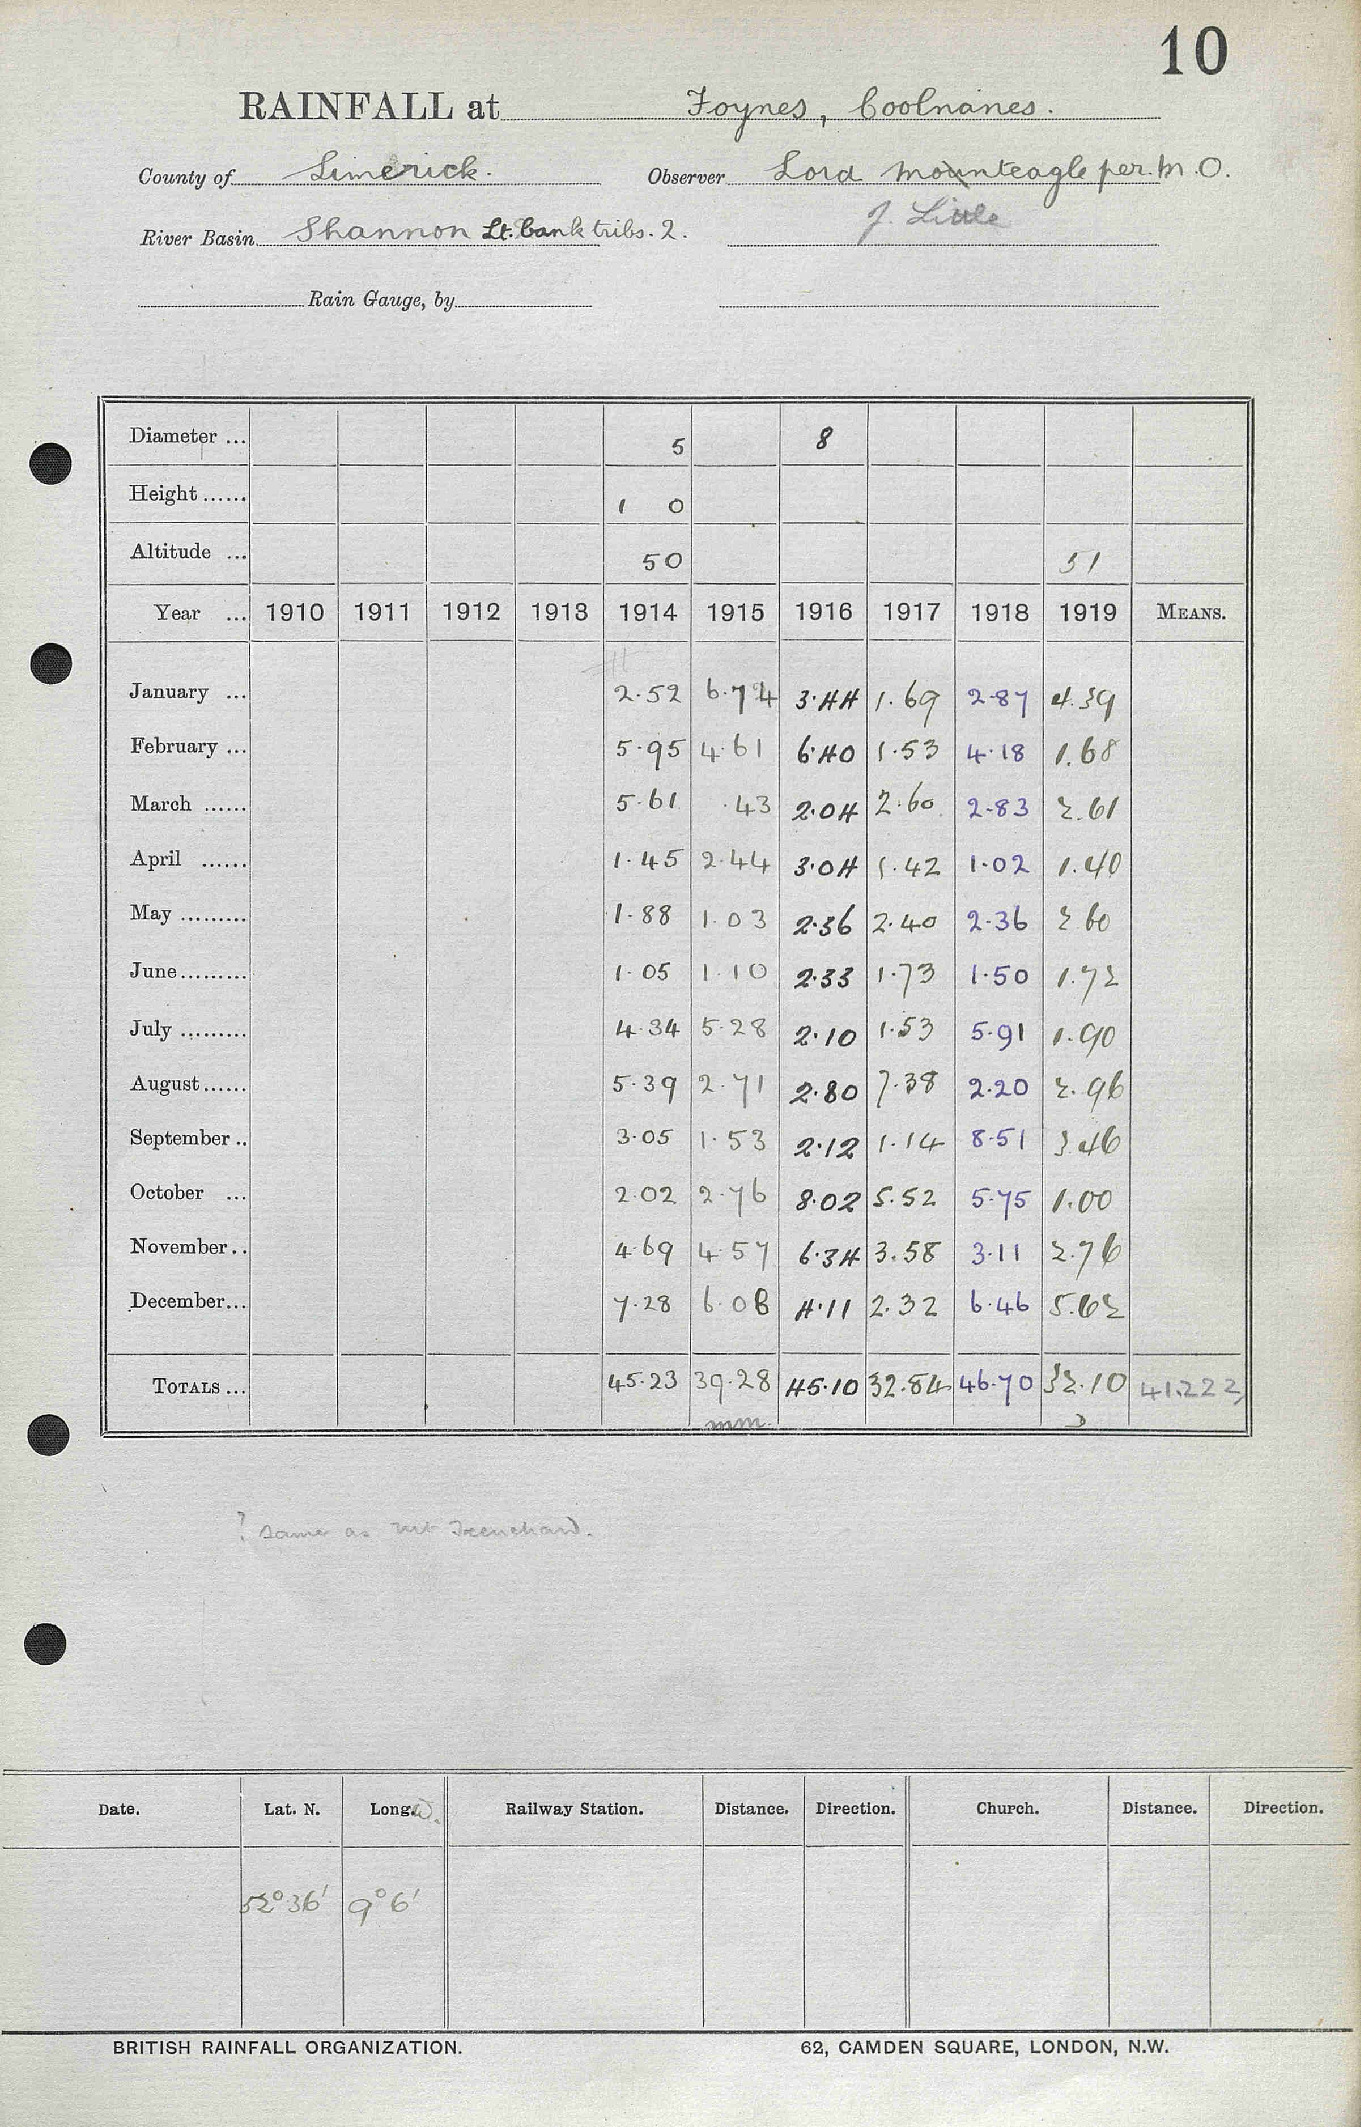 10
RAINFALL at Foynes, Coolnanes.
County of Limerick. Observer Lord Mounteagle per. M.O.
J. Little
River Basin Shannon Lt. bank tribs. 2.
Rain Gauge, by
Diameter ... 5 8
Height ...... 1 0
Altitude ... 50 51
Year ... 1910 1911 1912 1913 1914 1915 1916 1917 1918 1919 MEANS.
January ... 2.52 6.74 3.44 1.69 2.87 4.39
February ... 5.95 4.61 6.40 1.53 4.18 1.68
March ...... 5.61 .43 2.04 2.60 2.83 2.61
April ...... 1.45 2.44 3.04 1.42 1.02 1.40
May ......... 1.88 1.03 2.36 2.40 2.36 2.60
June......... 1.05 1.10 2.33 1.73 1.50 1.72
July ......... 4.34 5.28 2.10 1.53 5.91 1.90
August...... 5.39 2.71 2.80 7.38 2.20 2.96
September .. 3.05 1.53 2.12 1.14 8.51 3.46
October ... 2.02 2.76 8.02 5.52 5.75 1.00
November.. 4.69 4.57 6.34 3.58 3.11 2.76
December... 7.28 6.08 4.11 2.32 6.46 5.62
TOTALS ... 45.23 39.28 45.10 32.84 46.70 32.10 41.222
mm.
? same as Mt Trenchard.
Date. Lat. N. Long. W. Railway Station. Distance. Direction. Church. Distance. Direction.
52° 36' 9° 6'
BRITISH RAINFALL ORGANIZATION. 62, CAMDEN SQUARE, LONDON, N.W.